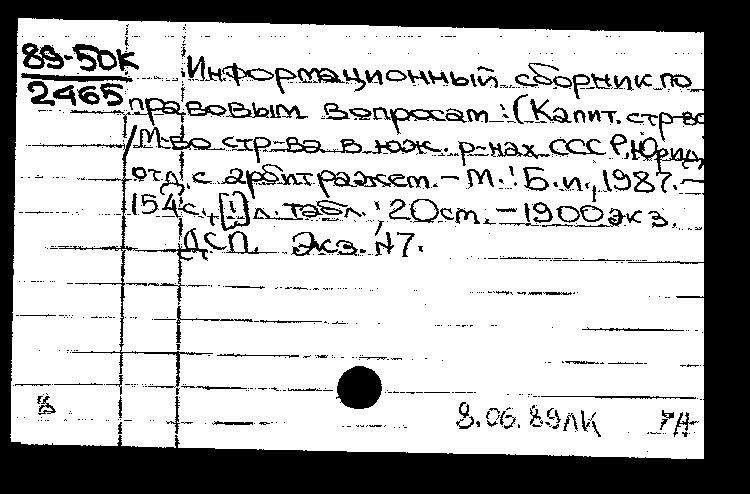 89-50К
2465
Информационный сборник по
правовым вопросам : (Капит. стр-во)
/М-во стр-ва в юж. р-нах СССР, Юрид.
отд. с арбитражем. - М. : Б.и., 1987. -
154 с., [1] л. табл. ; 20 см. - 1900 экз.
ДСП. Экз. N7.
8.06.89 ЛК